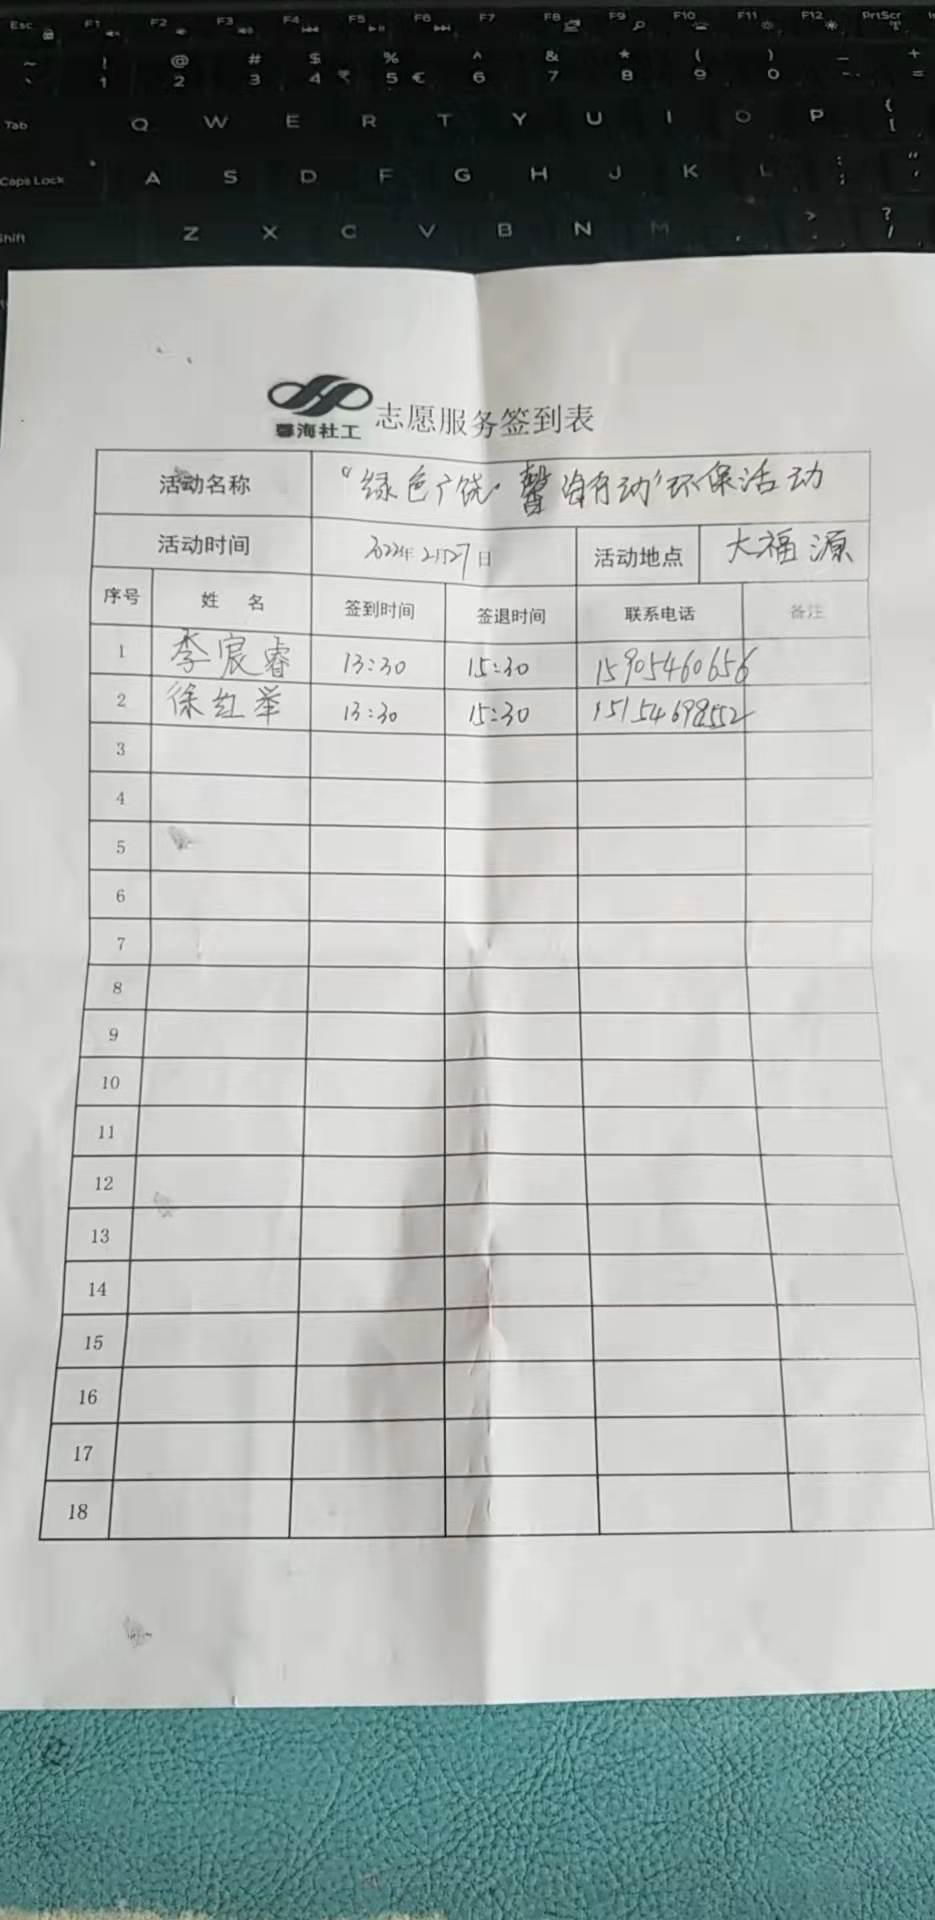 Esc F1 F2 F3 F4 F5 F6 F7 F8 F9 F10 F11 F12 PrtScr
~ ! @ # $ % ^ & * ( ) _ +
` 1 2 3 4 ₹ 5 € 6 7 8 9 0 - =
Tab Q W E R T Y U I O P { [
Caps Lock A S D F G H J K L : ; " '
Shift Z X C V B N M , > . ? /
馨海社工 志愿服务签到表
活动名称 "绿色广饶·馨海有动"环保活动
活动时间 2022年2月27日 活动地点 大福源
序号 姓 名 签到时间 签退时间 联系电话 备注
1 李宸睿 13:30 15:30 15905460656
2 徐红举 13:30 15:30 15154698552
3
4
5
6
7
8
9
10
11
12
13
14
15
16
17
18